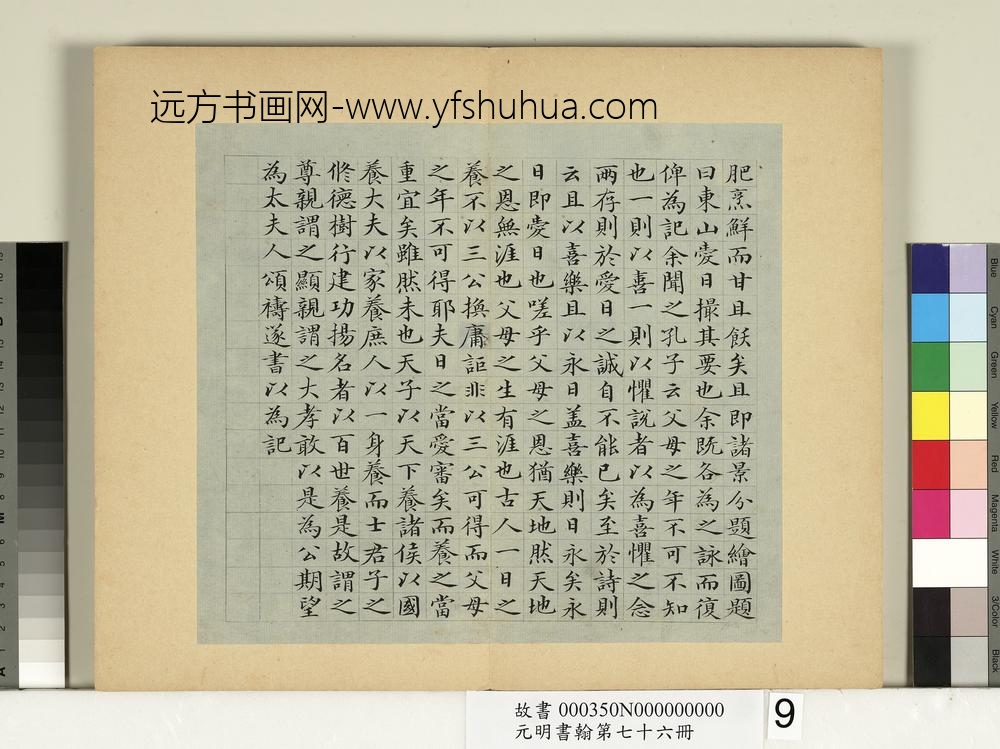 远方书画网-www.yfshuhua.com
肥烹鮮而甘且飫矣且即諸景分題繪圖題
曰東山愛日撮其要也余既各為之詠而復
俾為記余聞之孔子云父母之年不可不知
也一則以喜一則以懼說者以為喜懼之念
兩存則於愛日之誠自不能已矣至於詩則
云且以喜樂且以永日盖喜樂則日永矣永
日即愛日也嗟乎父母之恩猶天地然天地
之恩無涯也父母之生有涯也古人一日之
養不以三公換庸詎非以三公可得而父母
之年不可得耶夫日之當愛審矣而養之當
重宜矣雖然未也天子以天下養諸侯以國
養大夫以家養庶人以一身養而士君子之
脩德樹行建功揚名者以百世養是故謂之
尊親謂之顯親謂之大孝敢以是為公期望
為太夫人頌禱遂書以為記
故書 000350N000000000
元明書翰第七十六冊
9
Blue
Cyan
Green
Yellow
Red
Magenta
White
3/Color
Black